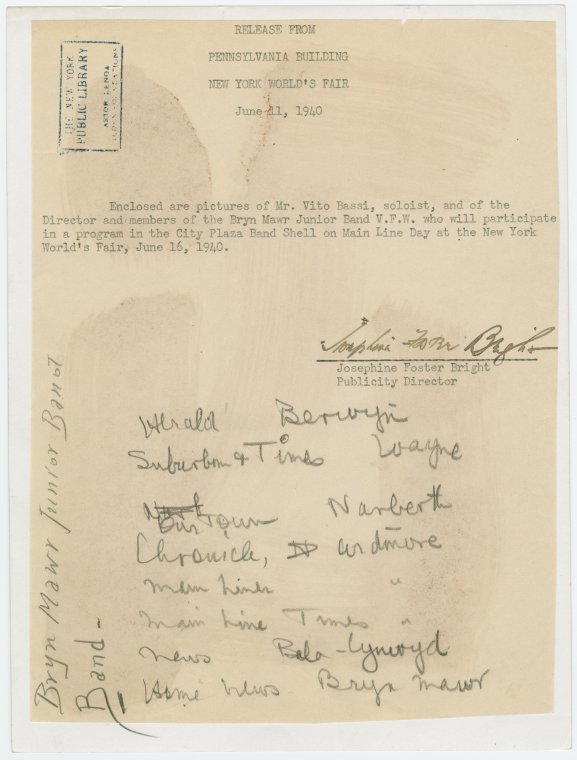 RELEASE FROM
PENNSYLVANIA BUILDING
NEW YORK WORLD'S FAIR
June 11, 1940
THE NEW YORK
PUBLIC LIBRARY
ASTOR LENOX
TILDEN FOUNDATIONS
Enclosed are pictures of Mr. Vito Bassi, soloist, and of the
Director and members of the Bryn Mawr Junior Band V.F.W. who will participate
in a program in the City Plaza Band Shell on Main Line Day at the New York
World's Fair, June 16, 1940.
Josephine Foster Bright
Josephine Foster Bright
Publicity Director
Herald Berwyn
Suburban & Times Wayne
Our Town Narberth
Chronicle, Ardmore
Main Liner "
Main Line Times "
News Bala-Cynwyd
Home News Bryn Mawr
Bryn Mawr Junior Band
Band-